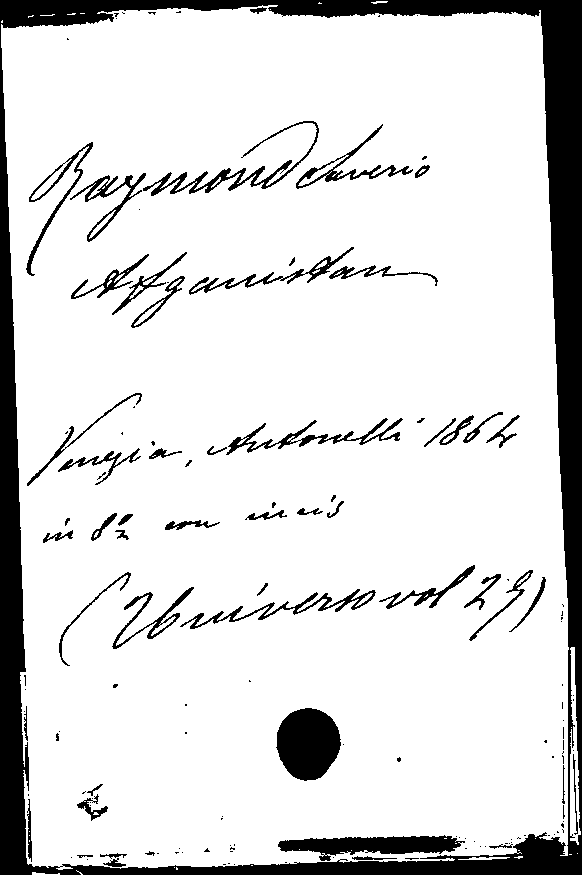 Raymond Saverio
Afganistan
Venezia, Antonelli 1864
in 8º con incis
(Universo vol 29)